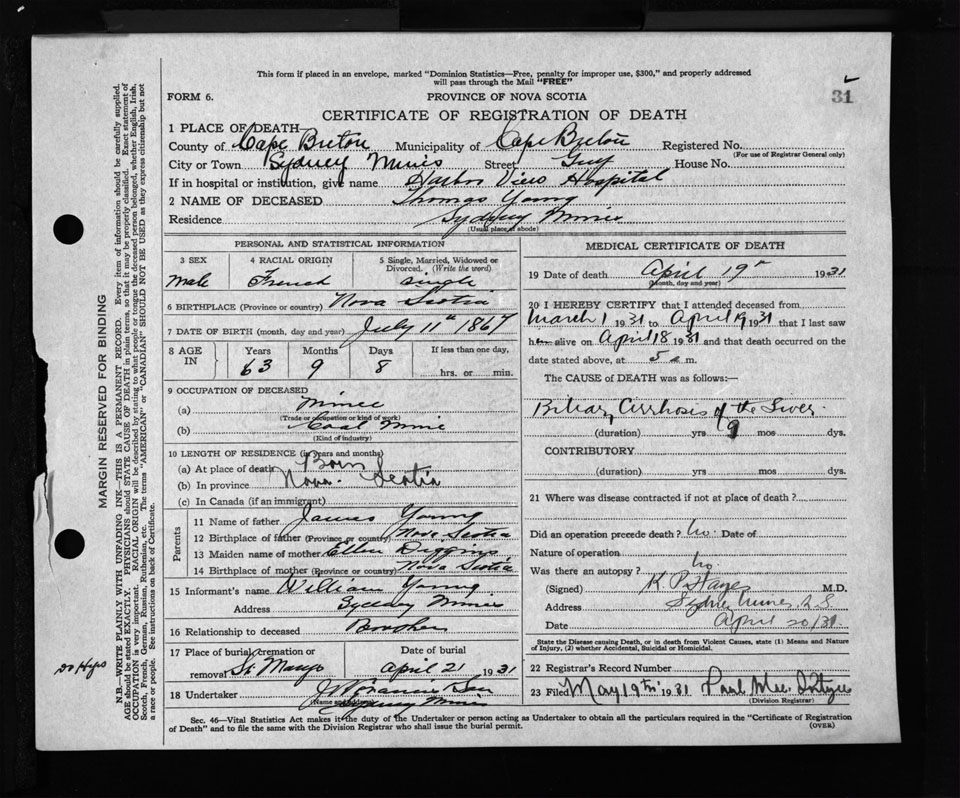 This form if placed in an envelope, marked "Dominion Statistics—Free, penalty for improper use, $300," and properly addressed
will pass through the Mail "FREE"
31
FORM 6.
PROVINCE OF NOVA SCOTIA
CERTIFICATE OF REGISTRATION OF DEATH
1 PLACE OF DEATH
County of Cape Breton Municipality of Cape Breton Registered No.
(For use of Registrar General only)
City or Town Sydney Mines Street House No.
If in hospital or institution, give name Harbor View Hospital
2 NAME OF DECEASED Thomas Young
Residence Sydney Mines
(Usual place of abode)
PERSONAL AND STATISTICAL INFORMATION
3 SEX 4 RACIAL ORIGIN 5 Single, Married, Widowed or
Divorced. (Write the word)
male French single
6 BIRTHPLACE (Province or country) Nova Scotia
7 DATE OF BIRTH (month, day and year) July 11th 1867
8 AGE IN Years Months Days If less than one day,
63 9 8 hrs. or min.
9 OCCUPATION OF DECEASED
(a) Miner
(Trade or occupation or kind of work)
(b) Coal Mine
(Kind of industry)
10 LENGTH OF RESIDENCE (in years and months)
(a) At place of death Born
(b) In province Nova Scotia
(c) In Canada (if an immigrant)
Parents
11 Name of father James Young
12 Birthplace of father (Province or country) Nova Scotia
13 Maiden name of mother Ellen Diggins
14 Birthplace of mother (Province or country) Nova Scotia
15 Informant's name William Young
Address Sydney Mines
16 Relationship to deceased Brother
17 Place of burial, cremation or
removal St. Marys
Date of burial
April 21 1931
18 Undertaker
(Name and address)
Sydney Mines
MEDICAL CERTIFICATE OF DEATH
19 Date of death April 19th 1931
(Month, day and year)
20 I HEREBY CERTIFY that I attended deceased from
March 1 1931 to April 19 1931 that I last saw
him alive on April 18 1931 and that death occurred on the
date stated above, at 5 a m.
The CAUSE of DEATH was as follows:—
Biliary Cirrhosis of the Liver
(duration) yrs 9 mos dys.
CONTRIBUTORY
(duration) yrs mos dys.
21 Where was disease contracted if not at place of death?
Did an operation precede death? no. Date of
Nature of operation
Was there an autopsy? no.
(Signed) K P Hayes M.D.
Address Sydney Mines N.S.
Date April 20/31
State the Disease causing Death, or in death from Violent Causes, state (1) Means and Nature
of Injury, (2) whether Accidental, Suicidal or Homicidal.
22 Registrar's Record Number
23 Filed May 19th 1931
(Division Registrar)
Sec. 46—Vital Statistics Act makes it the duty of the Undertaker or person acting as Undertaker to obtain all the particulars required in the "Certificate of Registration
of Death" and to file the same with the Division Registrar who shall issue the burial permit.
(OVER)
MARGIN RESERVED FOR BINDING
N.B.—WRITE PLAINLY WITH UNFADING INK—THIS IS A PERMANENT RECORD. Every item of information should be carefully supplied.
AGE should be stated EXACTLY. PHYSICIANS should STATE CAUSE OF DEATH in plain terms, so that it may be properly classified. Exact statement of
OCCUPATION is very important. RACIAL ORIGIN will be described by stating to what people or tongue the deceased person belonged, whether English, Irish,
Scotch, French, German, Russian, Ruthenian, etc. The terms "AMERICAN" or "CANADIAN" SHOULD NOT BE USED as they express citizenship but not
a race or people. See instructions on back of Certificate.